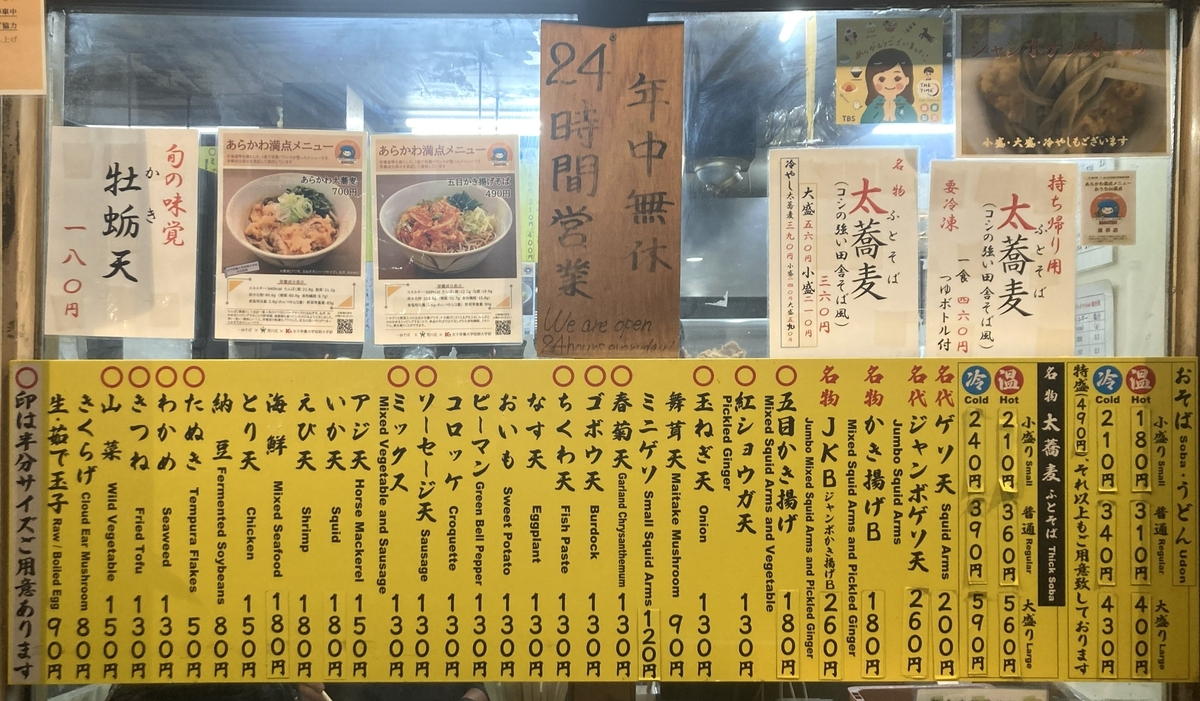 旬の味覚
牡蛎天
かき
一八〇円
あらかわ満点メニュー
あらかわ太蕎麦
700円
あらかわ満点メニュー
五目かき揚げそば
490円
年中無休
24時間営業
We are open
24hours everyday!
ありがとうございます
THE TIME,
TBS
小盛・大盛・冷やしもございます
名物
太蕎麦
ふとそば
(コシの強い田舎そば風)
三六〇円
大盛五六〇円 小盛二一〇円
冷やし太蕎麦三九〇円
持ち帰り用
太蕎麦
ふとそば
(コシの強い田舎そば風)
一食 四六〇円
つゆボトル付
要冷凍
あらかわ満点メニュー
おそば Soba・うどん Udon
小盛り Small 普通 Regular 大盛り Large
温 Hot 180円 310円 400円
冷 Cold 210円 340円 430円
特盛(490円)、それ以上もご用意致しております
名物 太蕎麦 ふとそば Thick Soba
小盛り Small 普通 Regular 大盛り Large
温 Hot 210円 360円 560円
冷 Cold 240円 390円 590円
名代 ゲソ天 Squid Arms 200円
名代 ジャンボゲソ天 260円
Jumbo Squid Arms
名物 かき揚げB 180円
Mixed Squid Arms and Pickled Ginger
名物 JKB ジャンボかき揚げB 260円
Jumbo Mixed Squid Arms and Pickled Ginger
〇五目かき揚げ 180円
Mixed Squid Arms and Vegetable
〇紅ショウガ天 130円
Pickled Ginger
〇玉ねぎ天 Onion 130円
舞茸天 Maitake Mushroom 90円
ミニゲソ Small Squid Arms 120円
〇春菊天 Garland Chrysanthemum 130円
〇ゴボウ天 Burdock 130円
〇ちくわ天 Fish Paste 130円
なす天 Eggplant 130円
おいも Sweet Potato 130円
〇ピーマン Green Bell Pepper 130円
コロッケ Croquette 130円
〇ソーセージ天 Sausage 130円
〇ミックス 130円
Mixed Vegetable and Sausage
アジ天 Horse Mackerel 150円
いか天 Squid 180円
えび天 Shrimp 180円
海鮮 Mixed Seafood 180円
とり天 Chicken 150円
納豆 Fermented Soybeans 80円
〇たぬき Tempura Flakes 50円
〇わかめ Seaweed 130円
〇きつね Fried Tofu 130円
〇山菜 Wild Vegetable 150円
きくらげ Cloud Ear Mushroom 80円
生・茹で玉子 Raw / Boiled Egg 90円
〇印は半分サイズご用意あります